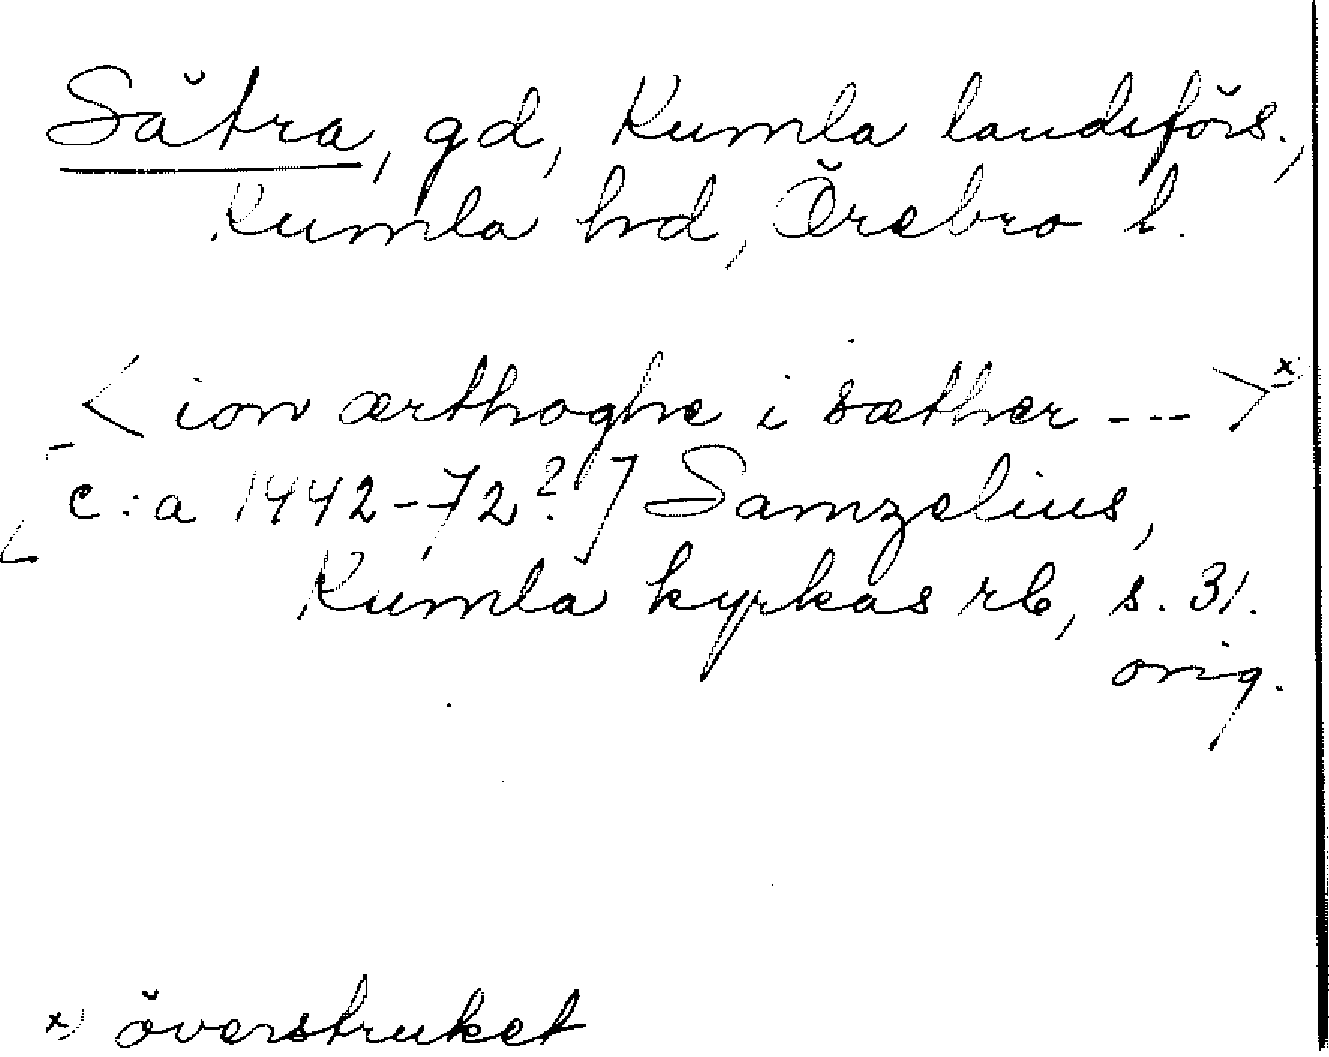 Sätra, gd, Kumla landsförs.,
Kumla hd, Örebro l.
< ion ærthoghe i sæther --- > x)
[c:a 1442-72?] Samzelius,
Kumla kyrkas rb, s. 31.
orig.
x) överstruket